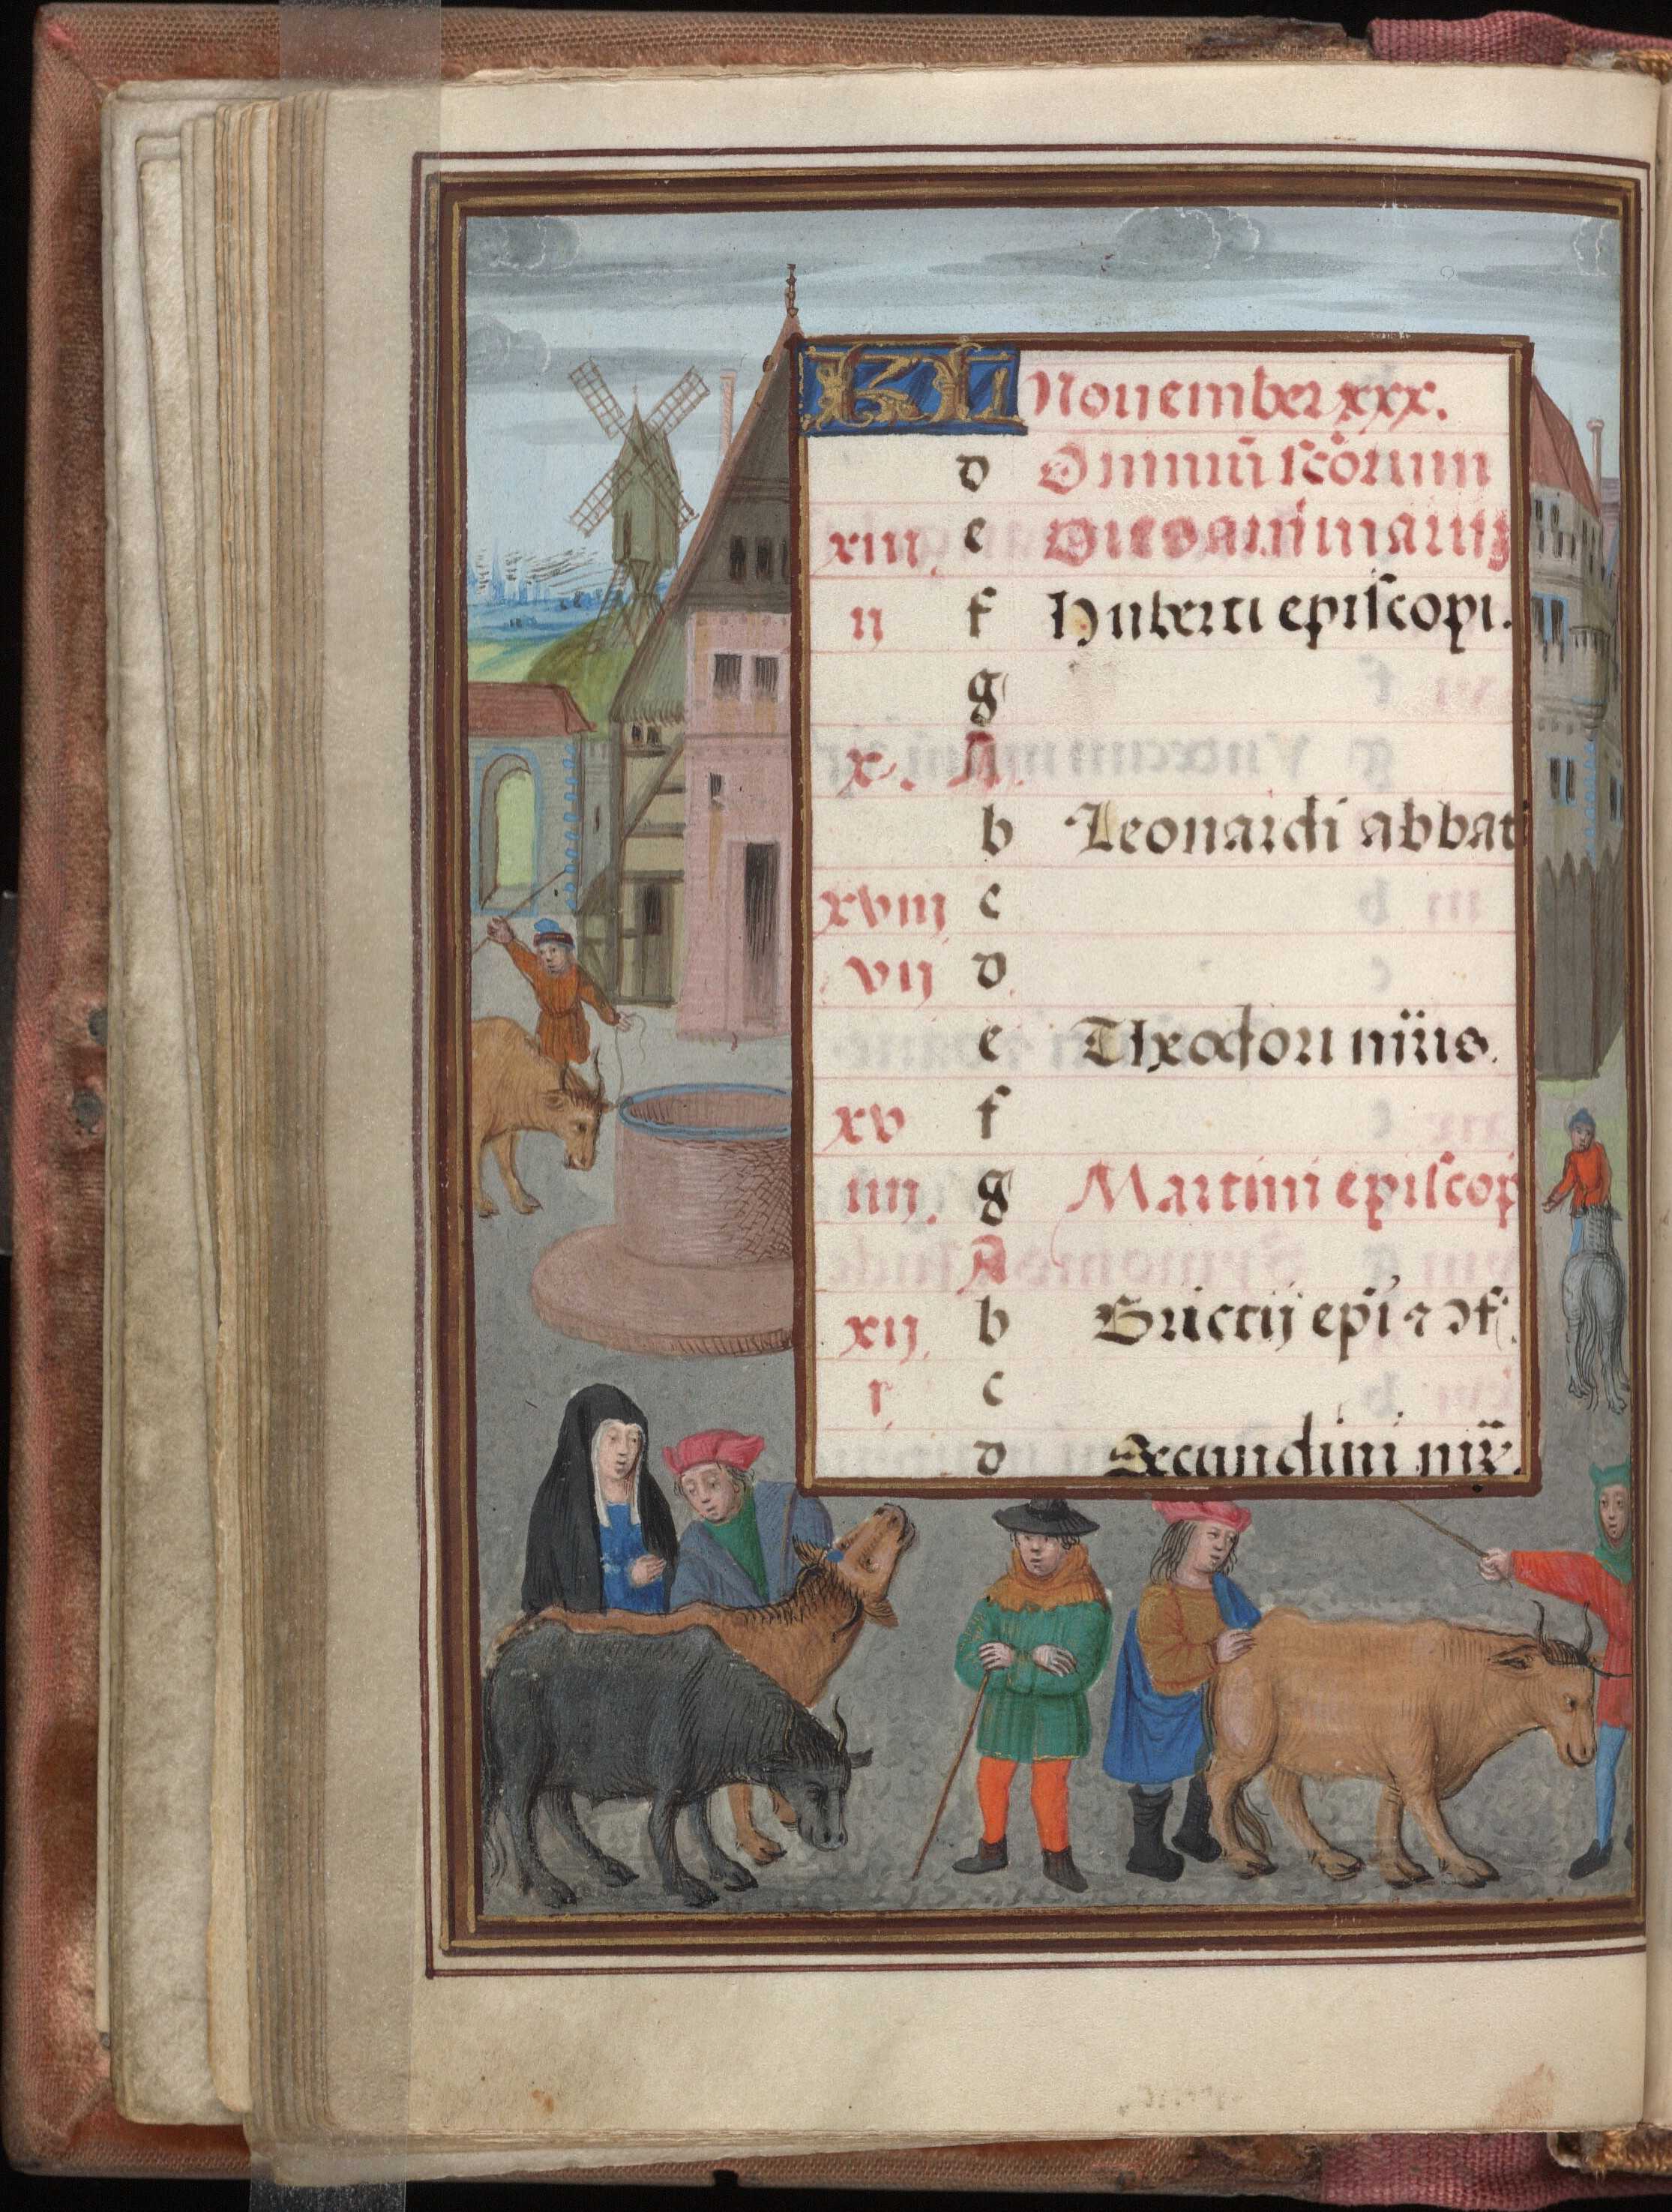 KL Nouember xxx.
d Omniū scōrum
xiii. e Dies animarū
ii f Huberti episcopi.
g
x. A.
b Leonardi abbati
xviii c
vii d.
e Theodori mr̄is.
xv f
iiii. g Martini episcop
A
xii. b Brictij epī ⁊ ↄf.
i. c
d Secundini mr̄.